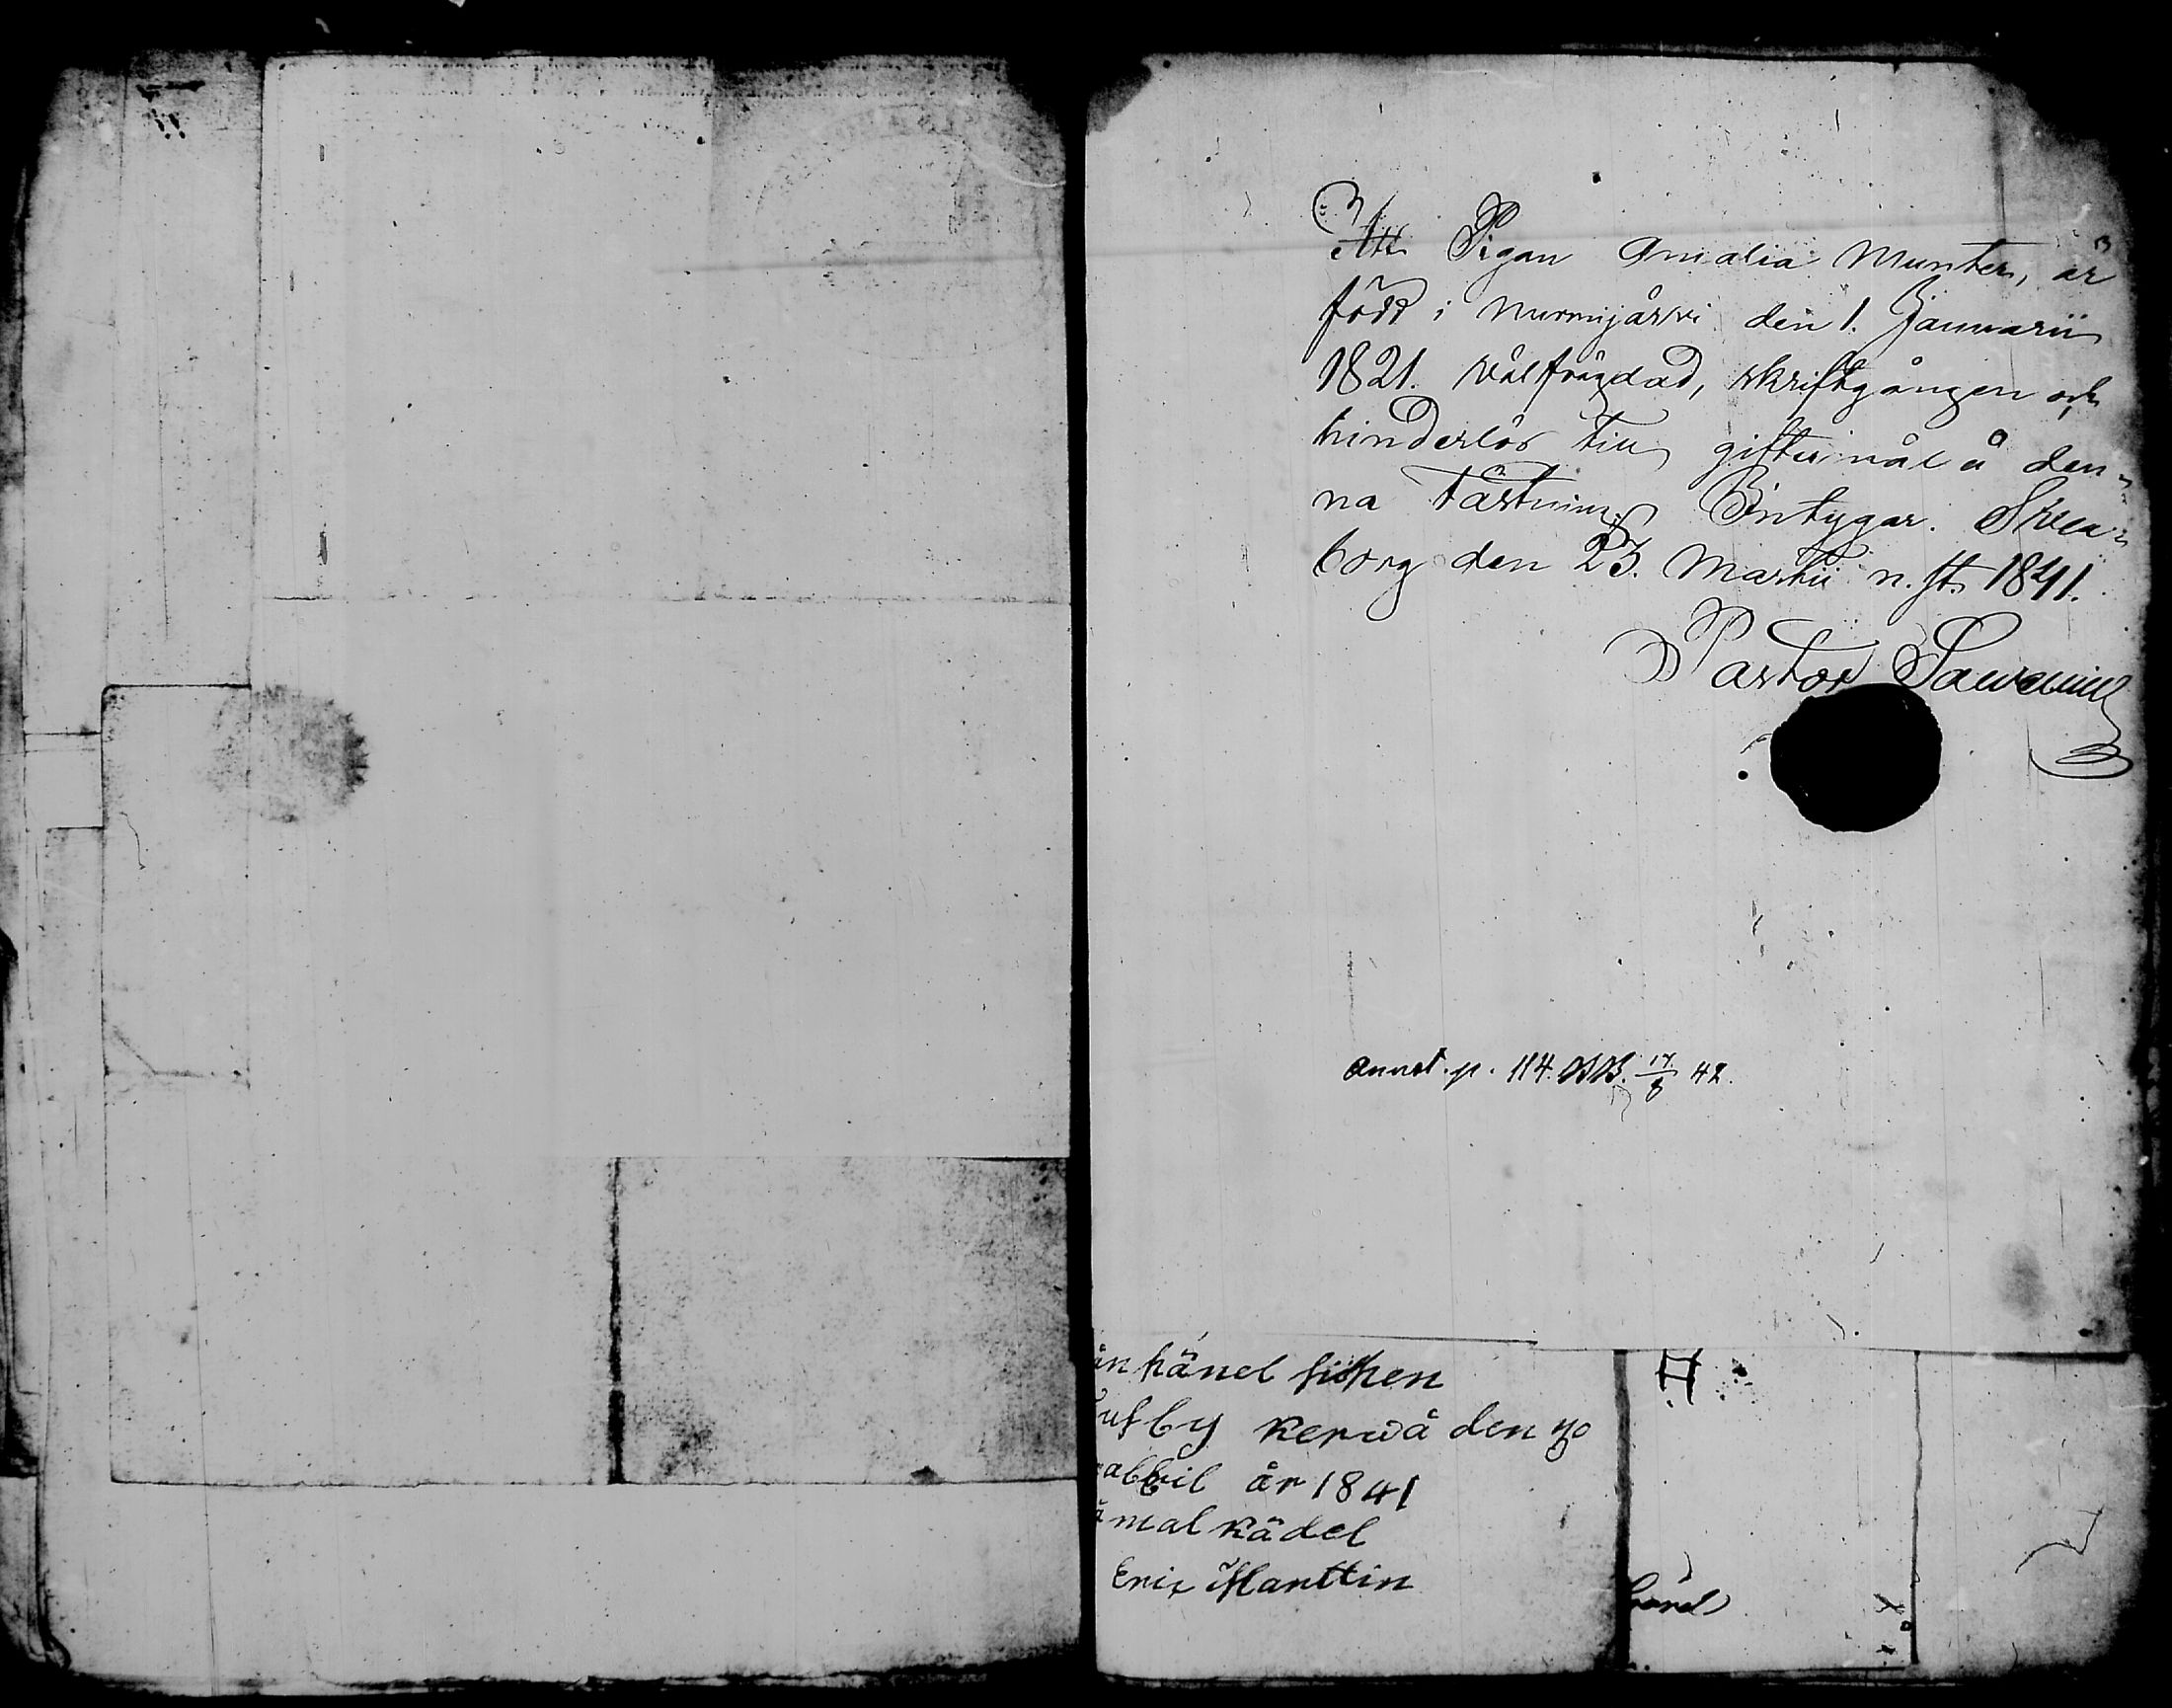 Att Pigan Amalia Munter, är
född i Nurmijärvi den 1. Januarii
1821. välfrägdad, skriftgången och
hinderlös till giftermål å den-
na fästning. Intygar. Svea-
borg den 23. Martii n. st. 1841.
Pastor
Annot. p. 114. BB. 17/8 42.
än hänel fisken
by Kerwå den 30
abbil år 1841
mal kädel
Eric Marttin
H